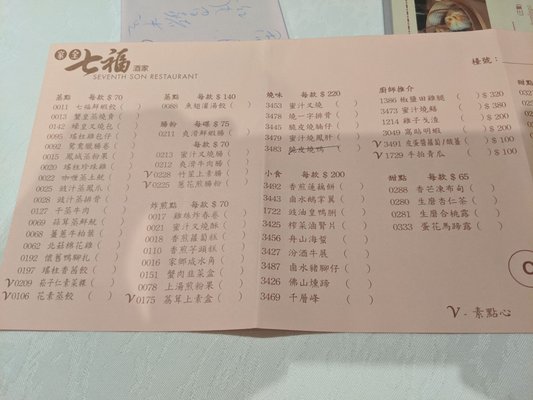 家全
七福 酒家
SEVENTH SON RESTAURANT
檯號：
蒸點 每款 $ 70
0011 七福鮮蝦餃 ( )
0013 蟹皇蒸燒賣 ( )
0142 蠔皇叉燒包 ( )
0095 瑤柱雞包仔 ( )
0092 鴛鴦臘腸卷 ( )
0015 鳳城蒸粉果 ( )
0020 瑤柱珍珠雞 ( )
0022 咖喱蒸土魷 ( )
0025 豉汁蒸鳳爪 ( )
0028 豉汁蒸排骨 ( )
0127 干蒸牛肉 ( )
0069 蒜茸蒸鮮魷 ( )
0068 薑蔥牛柏葉 ( )
0062 北菇棉花雞 ( )
0192 懷舊鴨腳扎 ( )
0197 瑤柱香茜餃 ( )
V 0209 茹子仁素菜粿 ( )
V 0106 花素蒸餃 ( )
蒸點 每款 $ 140
0088 魚翅灌湯餃 ( )
腸粉 每碟 $ 75
0211 爽滑鮮蝦腸 ( )
每款 $ 70
0213 蜜汁叉燒腸 ( )
0212 爽滑牛肉腸 ( )
V 0228 竹笙上素腸 ( )
V 0225 蔥花煎腸粉 ( )
炸煎點 每款 $ 70
0017 雞絲炸春卷 ( )
0021 蜜汁叉燒酥 ( )
0018 香煎蘿蔔糕 ( )
0110 香煎芋頭糕 ( )
0016 家鄉咸水角 ( )
0151 蟹肉韭菜盒 ( )
0078 上湯煎粉果 ( )
V 0175 荔茸上素盒 ( )
燒味 每款 $ 220
3453 蜜汁叉燒 ( )
3478 燒一字排骨 ( )
3445 脆皮燒腩仔 ( )
3479 蜜汁燒鳳肝 ( )
3483 脆皮燒鴨 ( )
小食 每款 $ 200
3492 香煎蓮藕餅 ( )
3443 鹵水鵝掌翼 ( )
1722 豉油皇鴨脷 ( )
3425 榨菜油腎片 ( )
3456 舟山海蜇 ( )
3427 汾酒牛展 ( )
3487 鹵水豬腳仔 ( )
3426 佛山燻蹄 ( )
3469 千層峰 ( )
廚師推介
1386 椒鹽田雞腿 ( ) $ 320
3473 蜜汁燒鱔 ( ) $ 380
1214 雞子戈渣 ( ) $ 200
3049 窩貼明蝦 ( ) $ 200
V 3491 皮蛋醋蘿蔔/酸薑 ( ) $ 100
V 1729 牛柏青瓜 ( ) $ 100
甜點 每款 $ 65
0288 香芒凍布甸 ( )
0280 生磨杏仁茶 ( )
0281 生磨合桃露 ( )
0333 蛋花馬蹄露 ( )
V - 素點心